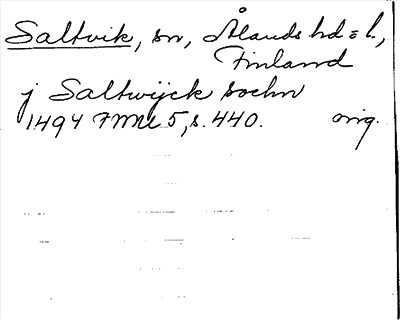 Saltvik, sn, Ålands hd o l.,
Finland
j Saltwijck sochn
1494 FMU 5, s. 440. orig.